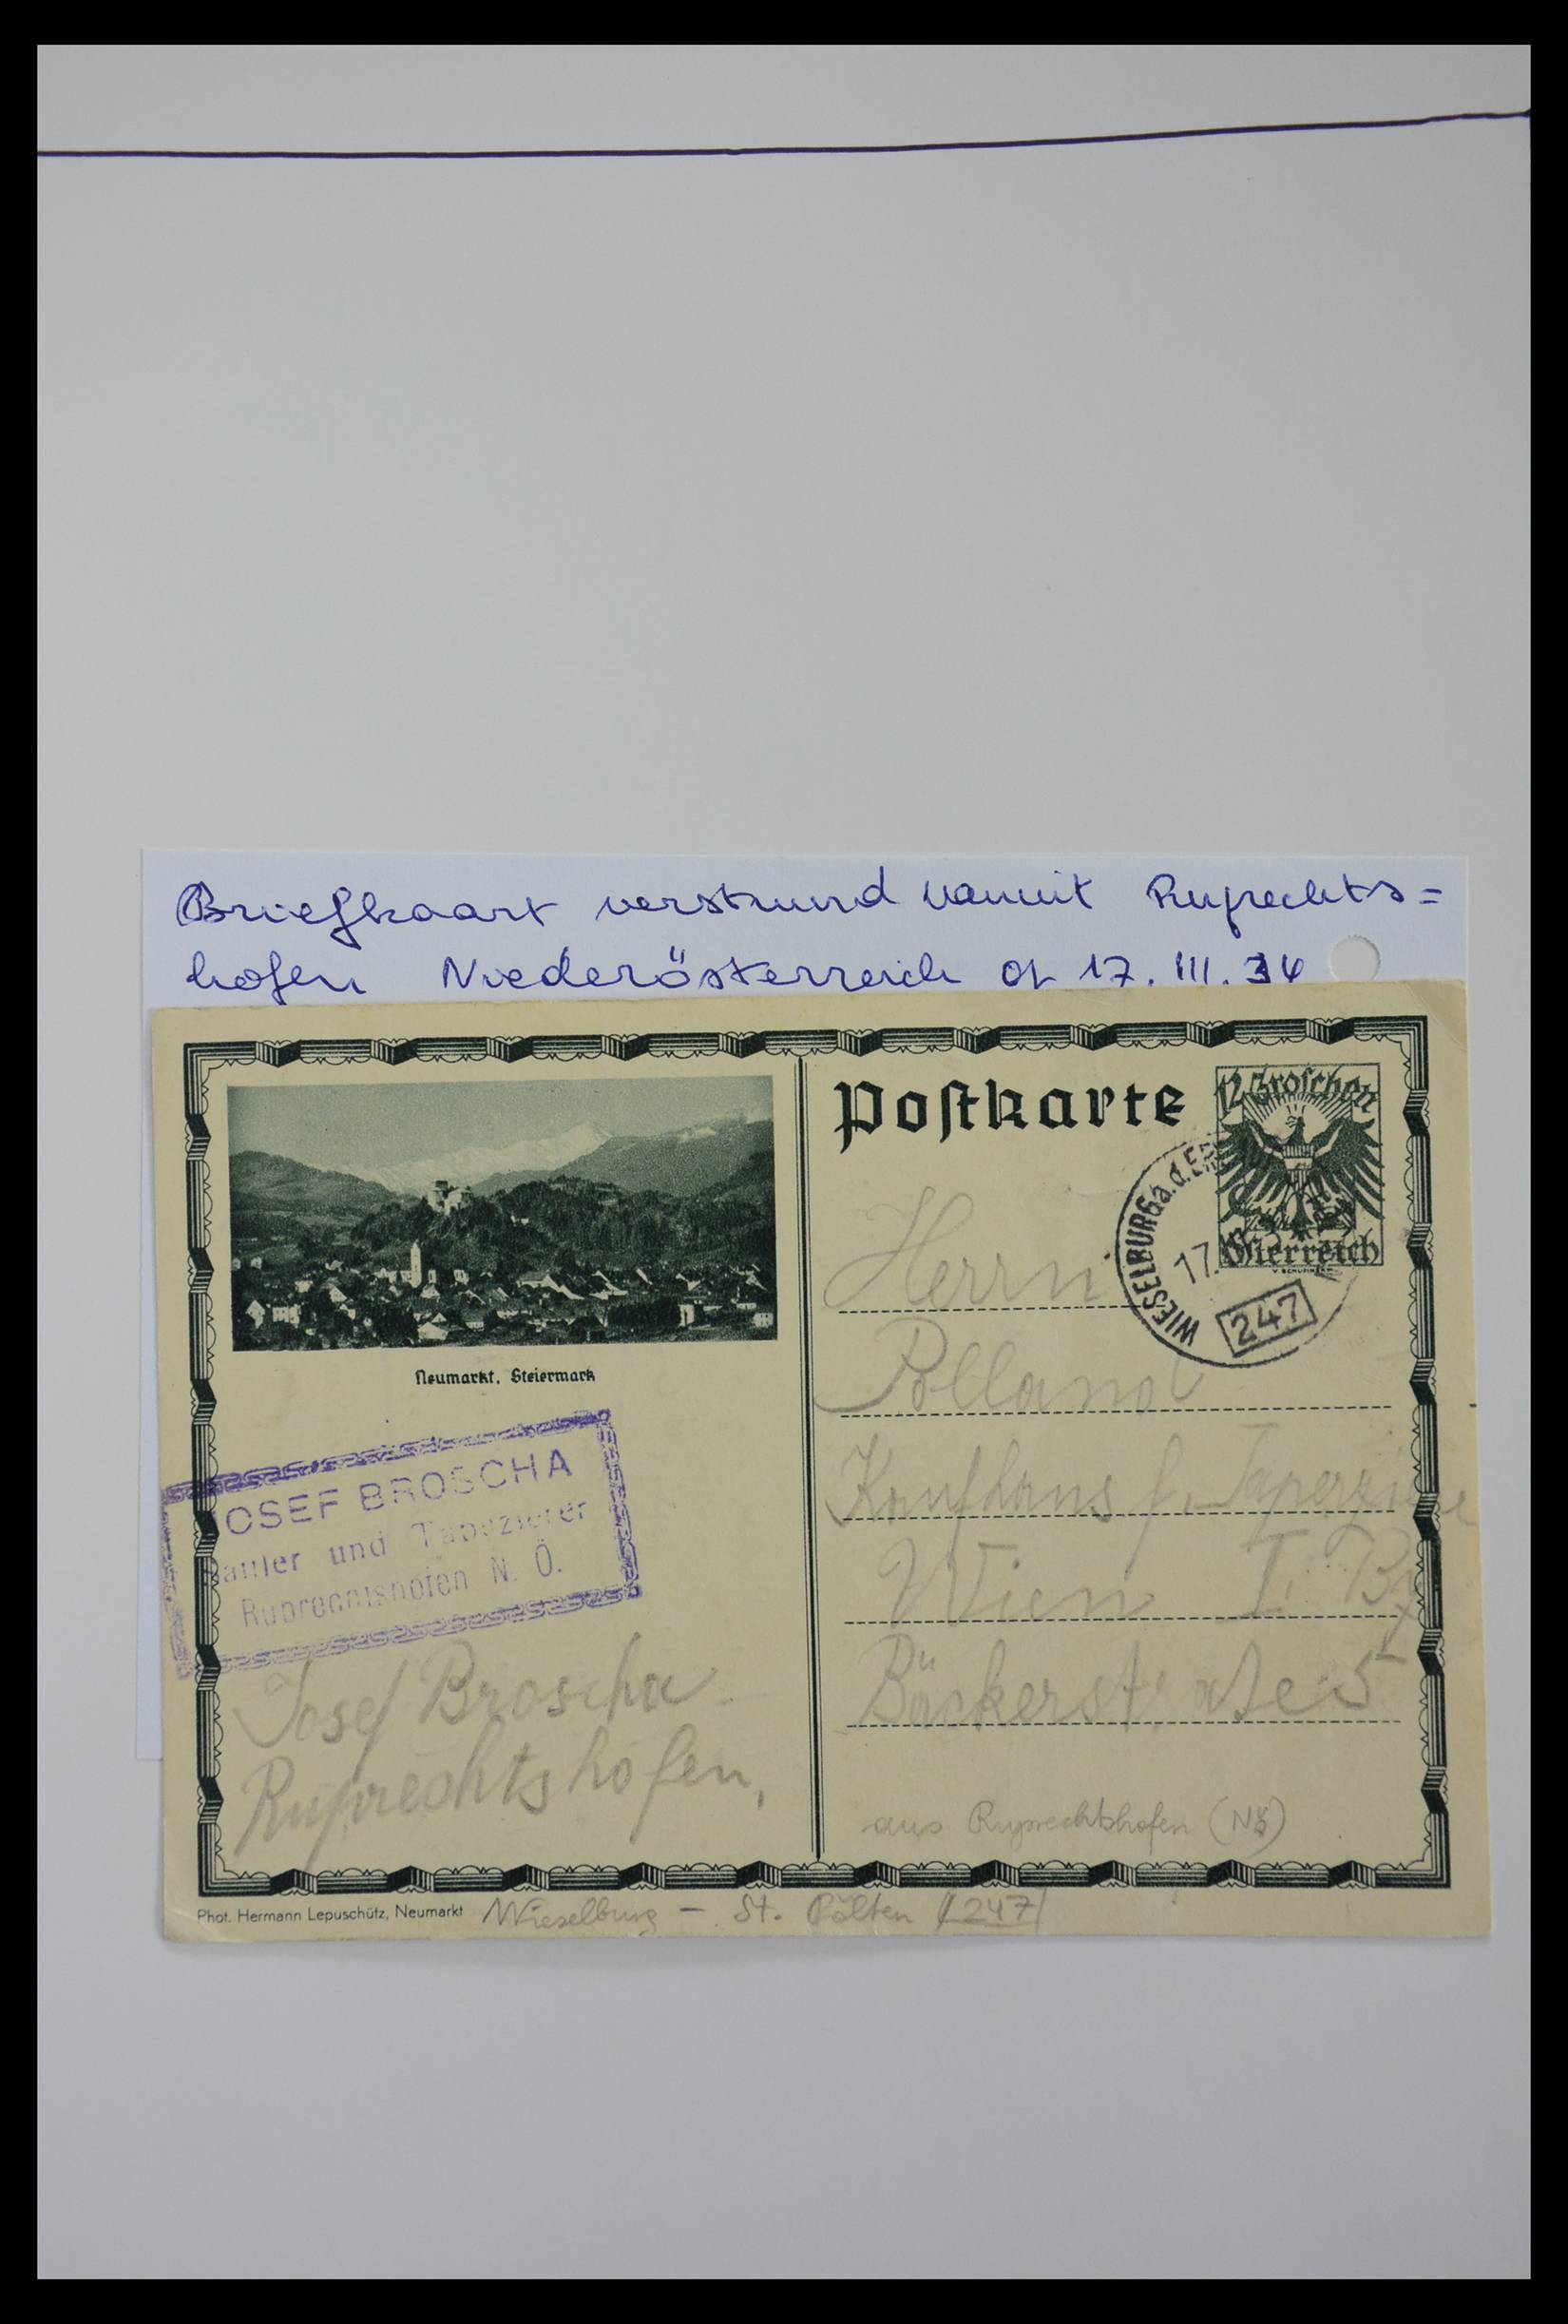 Briefkaart verstuurd vanuit Ruprechts=
hofen Niederösterreich op 17.III.34
Neumarkt, Steiermark
OSEF BROSCHA
attler und Tapezierer
Ruprechtshofen N. Ö.
Josef Broscha
Ruprechtshofen,
Phot. Hermann Lepuschütz, Neumarkt
Wieselburg - St. Pölten 247
Postkarte
12 Groschen
Österreich
WIESELBURG a.d.
17.
247
Herrn
Polland
Kaufhaus f. Tapezierer
Wien I.
Bäckerstraße 5
aus Ruprechtshofen (NÖ)